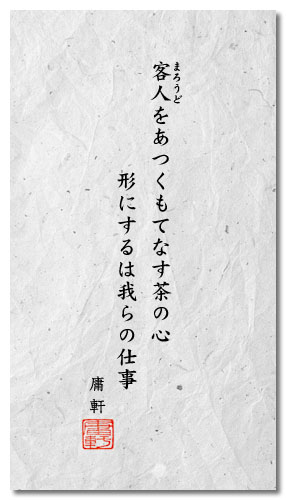 客人をあつくもてなす茶の心
まろうど
形にするは我らの仕事
庸軒
庸軒